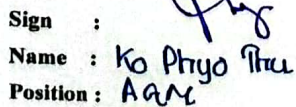 Sign :
Name : Ko Phyo Thu
Position : AGM